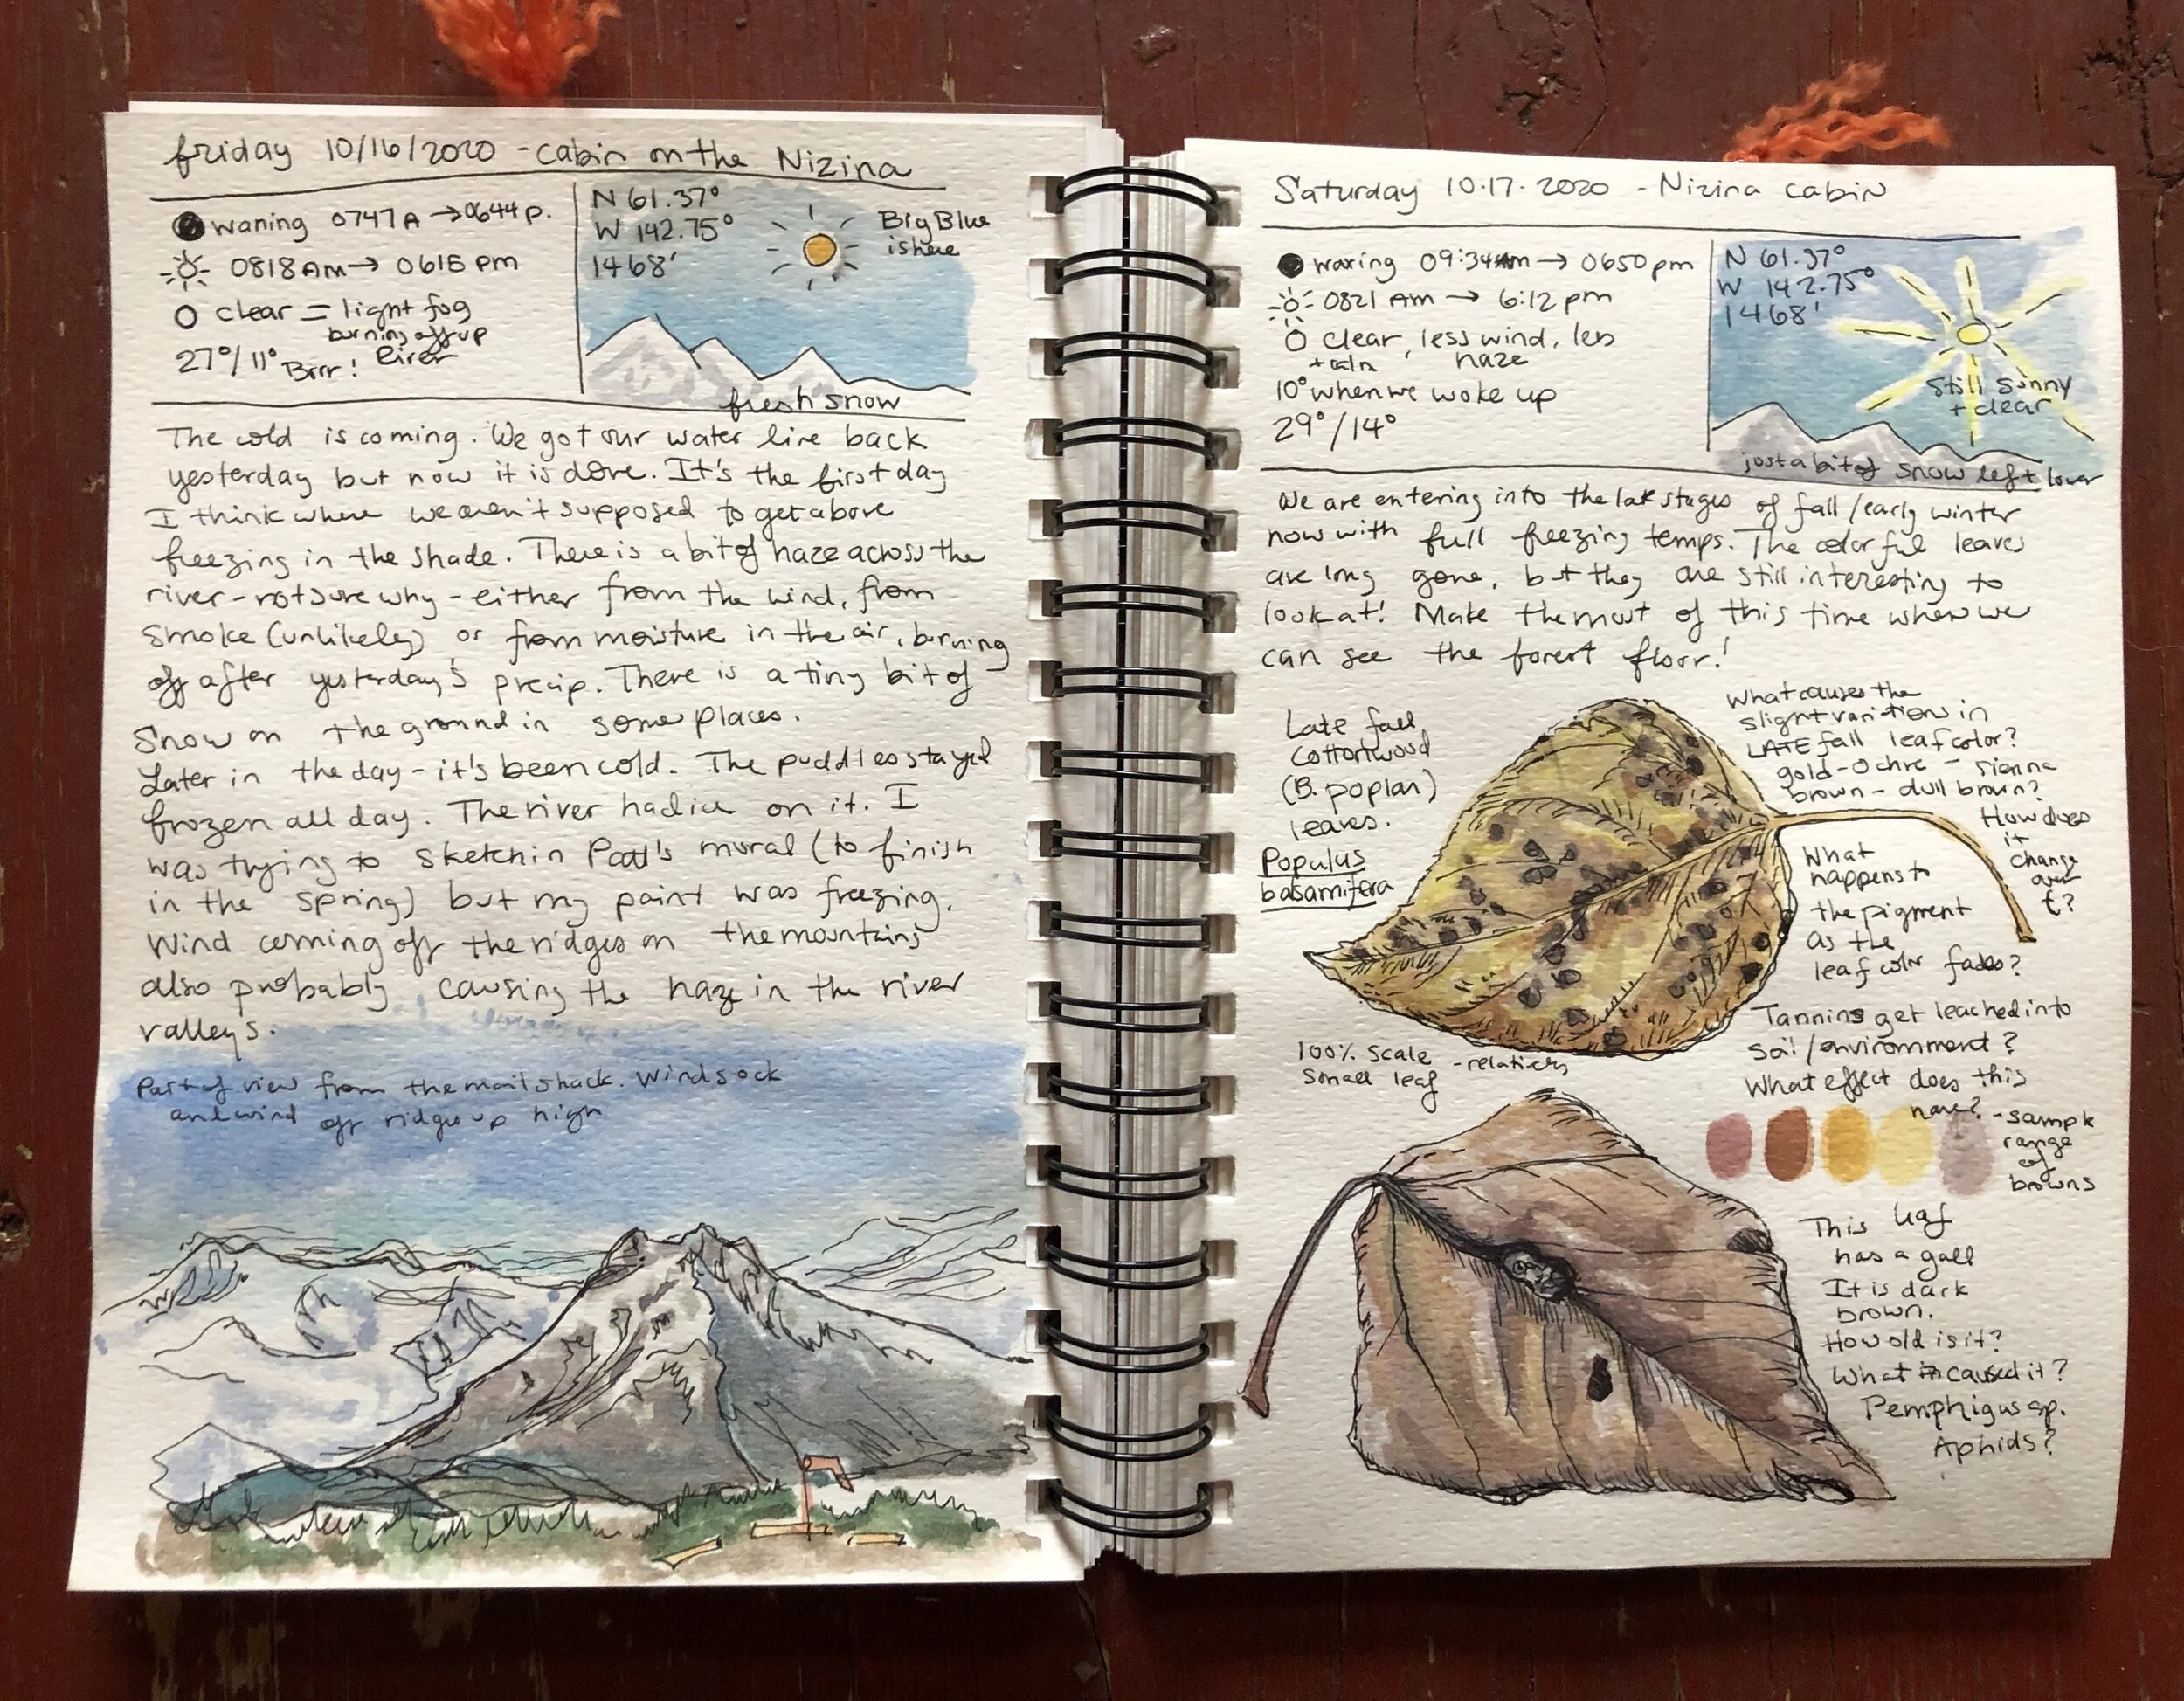 friday 10/16/2020 - cabin on the Nizina
waning 0747A → 0644 p.
0818 AM → 0615 pm
clear = light fog
burning off up
River
27°/11° Brrr!
N 61.37°
W 142.75°
1468'
Big Blue
is here
fresh snow
The cold is coming. We got our water line back
yesterday but now it is done. It's the first day
I think where we aren't supposed to get above
freezing in the shade. There is a bit of haze across the
river - not sure why - either from the wind, from
smoke (unlikely) or from moisture in the air, burning
off after yesterday's precip. There is a tiny bit of
snow on the ground in some places.
Later in the day - it's been cold. The puddles stayed
frozen all day. The river had ice on it. I
was trying to sketch in Patt's mural (to finish
in the spring) but my paint was freezing.
Wind coming off the ridges on the mountains
also probably causing the haze in the river
valleys.
Part of view from the mail shack. Windsock
and wind off ridges up high
Saturday 10.17.2020 - Nizina cabin
waxing 09:34 Am → 0650 pm
0821 AM → 6:12 pm
clear, less wind, less
+ calm haze
10° when we woke up
29°/14°
N 61.37°
W 142.75°
1468'
Still sunny
+ clear
just a bit of snow left lower
We are entering into the late stages of fall/early winter
now with full freezing temps. The colorful leaves
are long gone, but they are still interesting to
look at! Make the most of this time when we
can see the forest floor!
Late fall
Cottonwood
(B. poplar)
leaves.
Populus
basamifera
What causes the
slight variations in
LATE fall leaf color?
gold - ochre - sienna
brown - dull brown?
How does
it
change
over
t?
What
happens to
the pigment
as the
leaf color fades?
Tannins get leached into
soil/environment?
What effect does this
have?
100% scale - relatively
small leaf
- sample
range
of
browns
This leaf
has a gall
It is dark
brown.
How old is it?
What caused it?
Pemphigus sp.
Aphids?